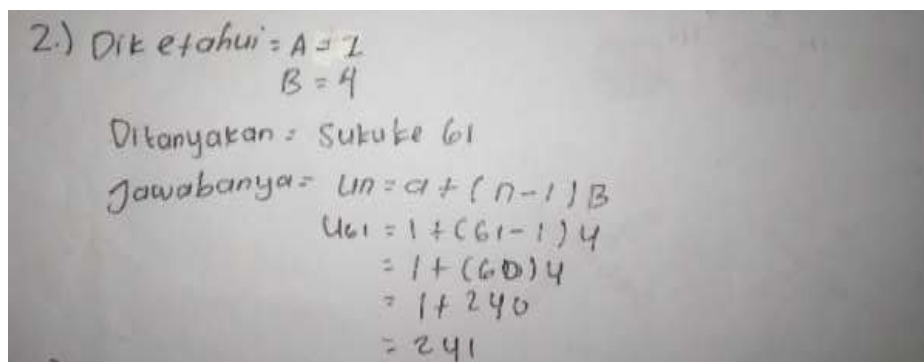 2.) Diketahui = A = 1
B = 4
Ditanyakan = Sukuke 61
Jawabanya = Un = a + (n-1) B
U61 = 1 + (61-1) 4
= 1 + (60) 4
= 1 + 240
= 241